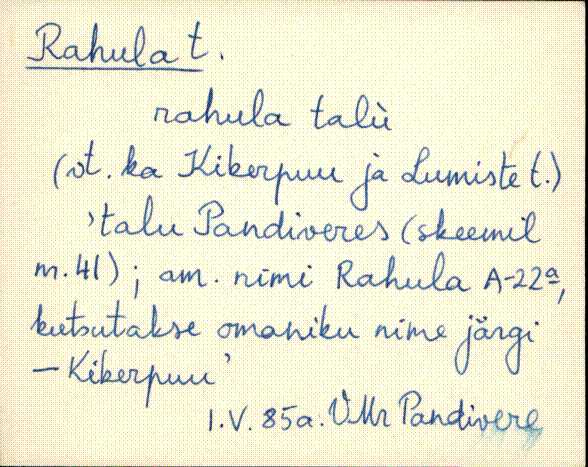 Rahula t.
rahula talù
(vt. ka Kikerpuu ja Lumiste t.)
'talu Pandiveres (skeemil
m. 41) ; am. nimi Rahula A-22ª,
kutsutakse omaniku nime järgi
– Kikerpuu'
1.V. 85a. VMr Pandivere